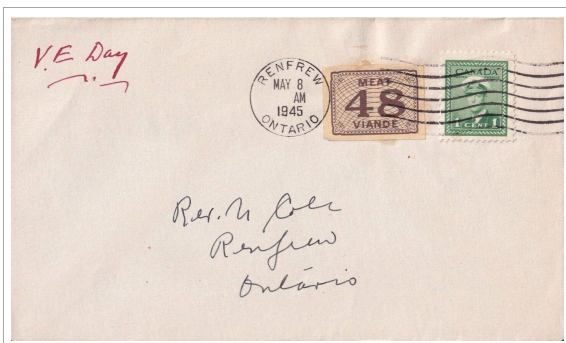 V.E Day
RENFREW
MAY 8
AM
1945
ONTARIO
MEAT
48
VIANDE
CANADA
1 CENT 1
Rev. N Cole
Renfrew
Ontario